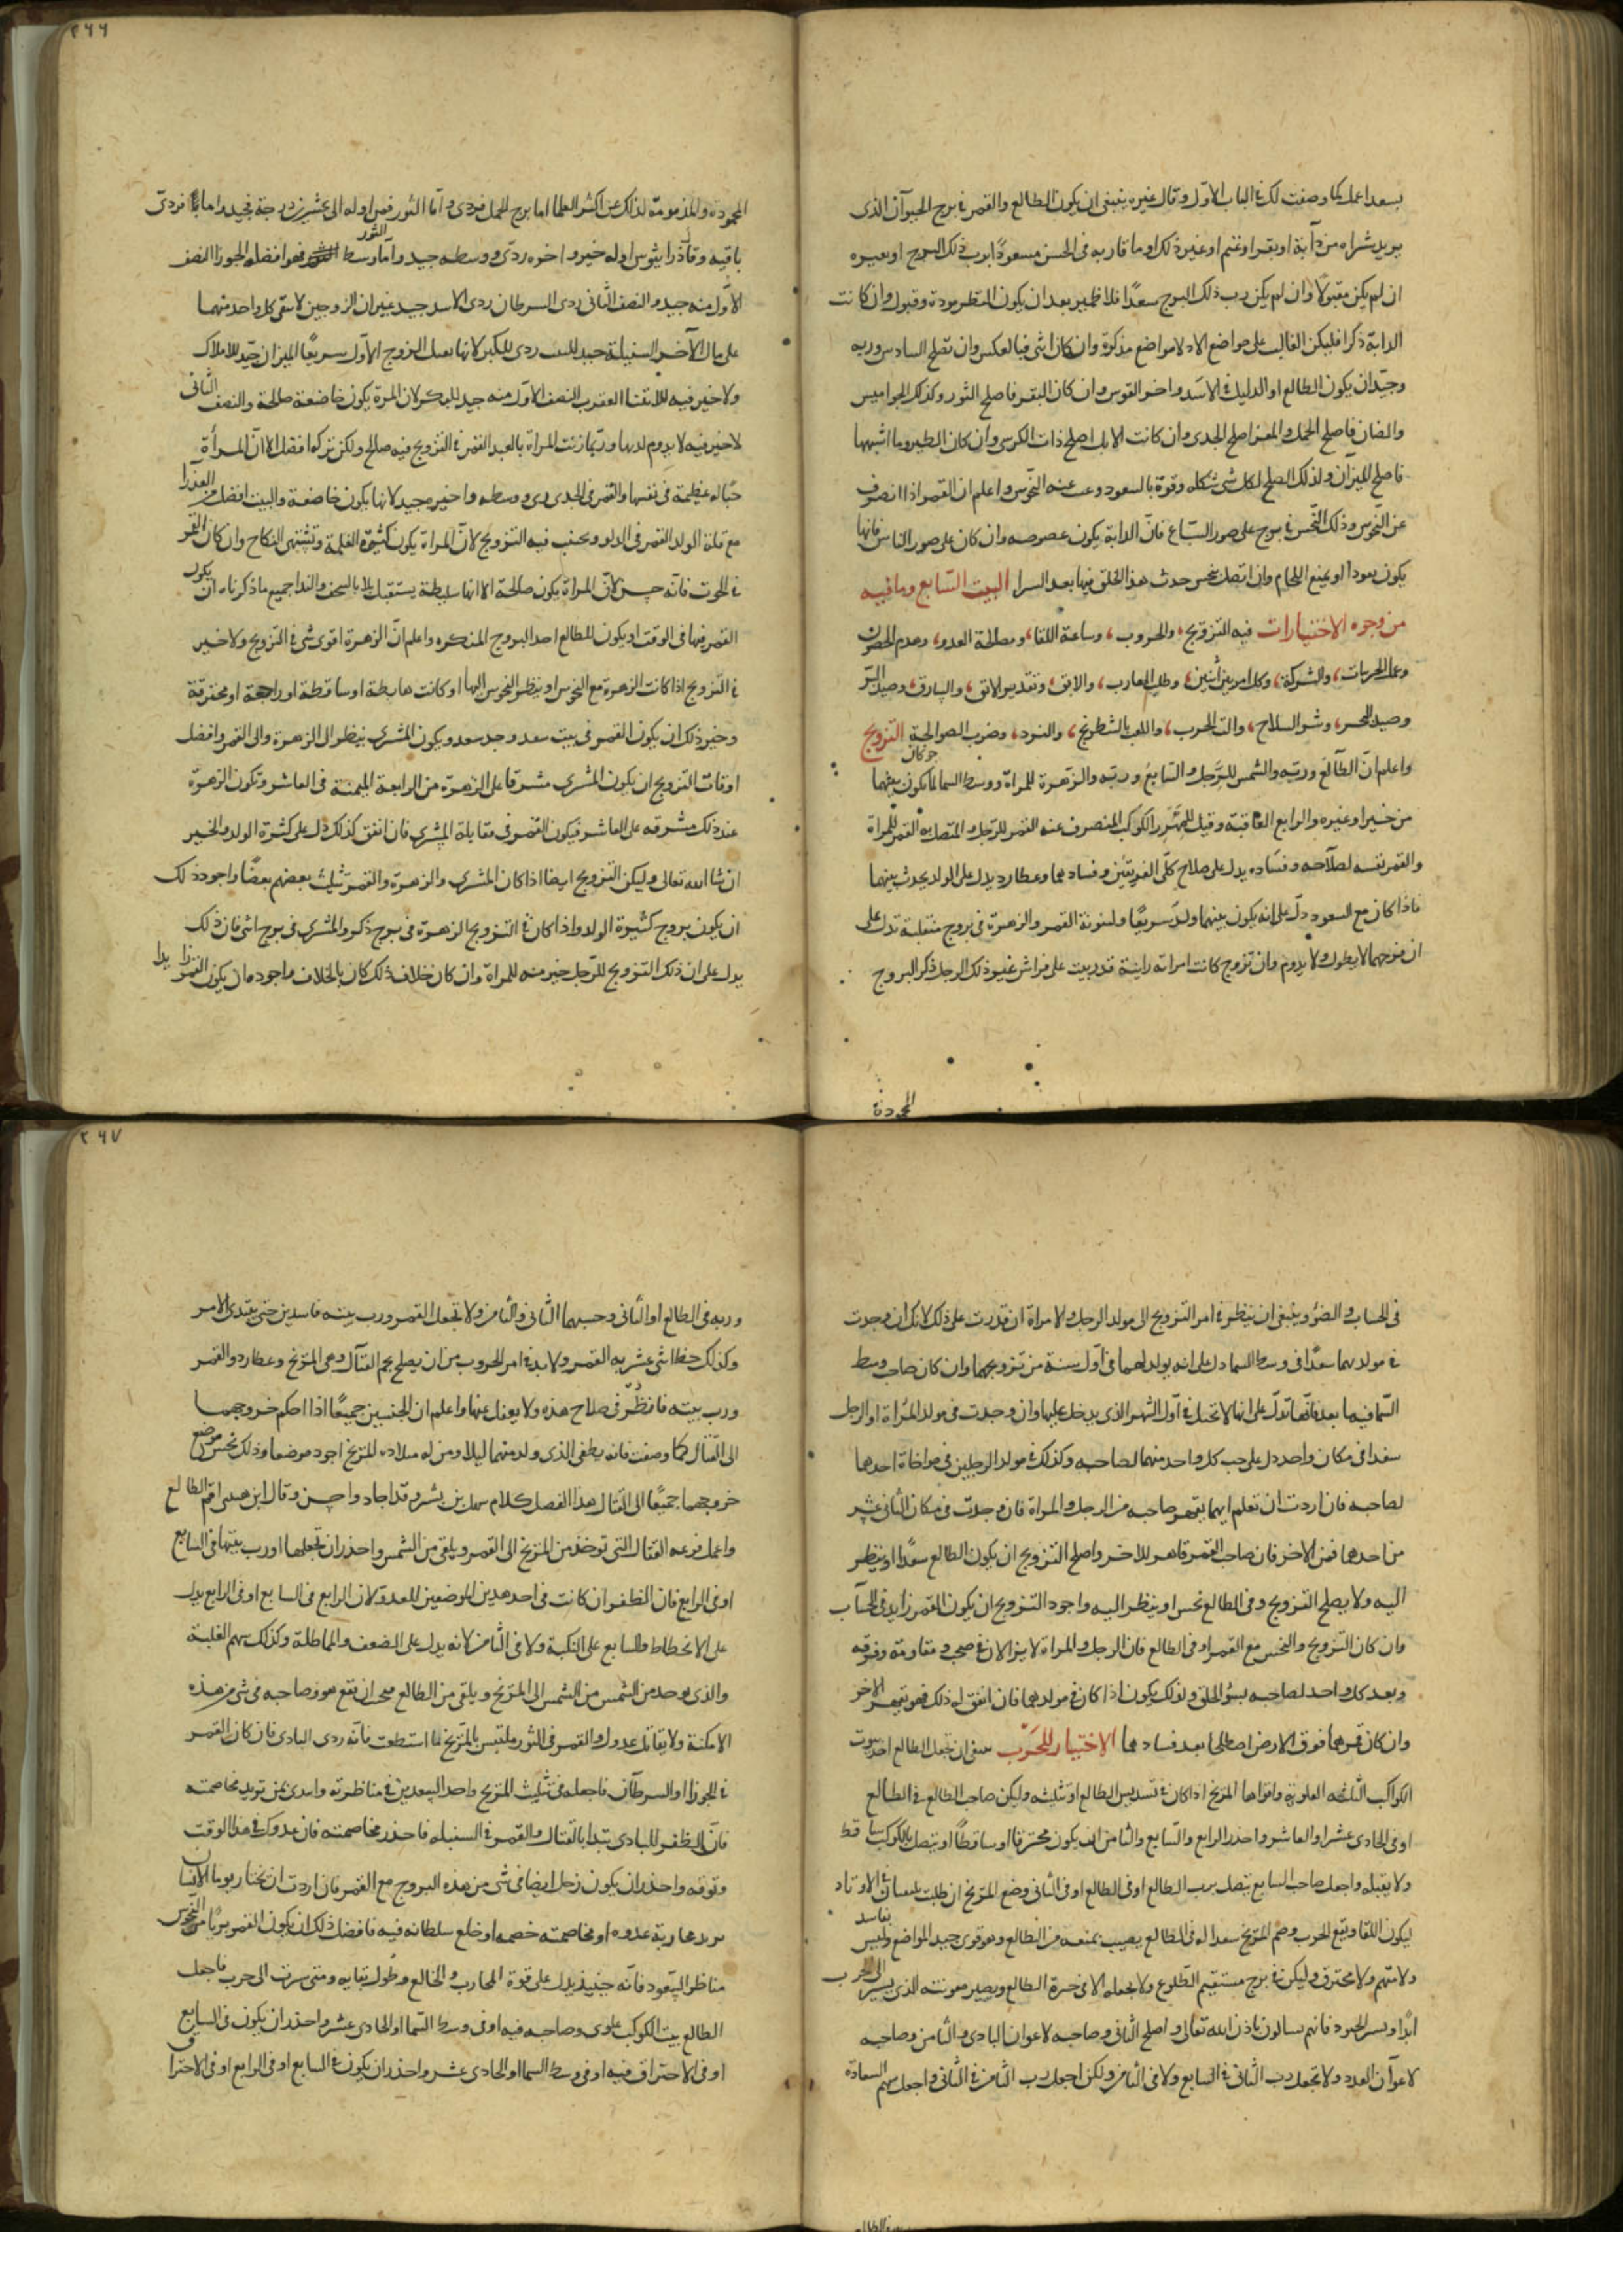 بسعد اعمل كما وصفت لك فى الباب الاوّل وقال غيره ينبغى ان يكون الطالع والقمر فى برج الحيوان الذى
يريد شراه من دآبة او بقر او غنم او غير ذلك او ما قاربه فى الحسن مسعودًا برب ذلك البرج او بغيره
ان لم يكن مقبولًا وان لم يكن رب ذلك البرج سعدًا فلا ظير بعد ان يكون النظر مودة وقبول وان كانت
الدابّة ذكرا فليكن الغالب على مواضع الادلا مواضع مذكرة وان كان انثى فبالعكس وان تصلح السادس وربه
وجيّد ان يكون الطالع او الدليل فى الاسَد واخر القوس وان كان البقر فاصلح الثور وكذلك الجواميس
والضان فاصلح الحمل والمعز اصلح الجدى وان كانت الابل اصلح ذات الكرسى وان كان الطير وما اشبهها
فاصلح الميزان ولذلك الصلح لكل شى شكله وقوة بالسعود وعب عنه النّحوس واعلم ان القمر اذا انصرف
عن النّحوس وذلك النّحس فى برج على صور السّباع فانّ الدابة يكون عصوصه وان كان على صور الناس فانها
يكون بعودا او يمنع اللجام وان اتصل بنحس حدث هذا الخلق فيها بعد السرا البيت السّابع وما فيه
من وجوه الاختيارات فيه التزويج، والحروب، وساعة اللقا، ومصالحة العدو، وهدم الحصون
وعمل الحربيات، والشركة، وكل امر بين اثنين، وطلب الهارب، والابق، وتقدير الابق، والسارق، وصيد البرّ
وصيد البحر، وشر السلاح، والت الحرب، واللعب بالشطرنج، والنرد، وضرب الصوالجة التزويج
جوكان
واعلم انّ الطّالع وربّه والشمس للرّجل والسّابع وربّه والزّهرة للمراة ووسط السما لما يكون بينهما
من خير او غيره والرابع العاقبة وقيل للمهَر والكوكب المنصرف عنه القمر للرّجل والمتصل به القمر للمراة
والقمر نفسه لصلاحه وفسَاده يدل على صلاح كلّى الفريقين وفسادهما وعطارد يدل على الولد يحدث بينهما
فاذا كان مع السعود دلّ على انه يكون بينهما ولدٌ سريعًا ولبنونة القمر والزهرة فى بروج منقلبة تدل على
ان فرحهما لا يطول ولا يدوم وان تزوج كانت امراته زانية قد ربيت على فراش غير ذلك الرجل ذكر البروج
المحمودة
٢٦٦
المحمودة والمذمومة لذلك عن اكثر العلما اما برج الحمل فردى واما الثور فمن اوله الى عشرين درجة فجيد واما فردى
باقيه وقال ذرايثوس اوله خير واخره ردى ووسطه جيد واما وسط الثور فهو افضله الجوزا النصف
الاوّل منه جيد والنصف الثانى ردى السرطان ردى الاسد جيد غير ان الزوجين لا يبقى كل واحد منهما
على مال الآخر السنبلة جيد للثيب ردى للبكر لانها تعمل الزوج الاوّل سريعًا الميزان جيّد للاملاك
ولا خير فيه للاتقا العقرب النصف الاوّل منه جيد للبكر لان المرة يكون خاضعة صالحة والنصف الثانى
لا خير فيه لا يدوم لديها وربّما زنت المراة بالعبد القمر فى التزويج فيه صالح ولكن تركه افضل الا انّ المرأة
حبّاله عظيمة فى نفسها والقمر فى الجدى ردى ووسطه واخره جيد لانها يكون خاضعة والبيت افضل من العذرا
مع قلة الولد القمر فى الدلو ويجتنب فيه التزويج لانّ المراة يكون كثيرة الغلمة وتشتهى النكاح وان كان القمر
فى الحوت فانّه حسن لانّ المراة يكون صالحة الا انها سليطة يستقبل بلا بالسخف والندا جميع ما ذكرناه ان يكون
القمر فيها فى الوقت او يكون للطالع احد البروج المنكره واعلم انّ الزهرة اقوى شى فى التزويج ولا خير
فى التزويج اذا كانت الزهرة مع النحوس او ينظر النحوس اليها او كانت هابطة او ساقطة او راجعة او محترقة
وخير ذلك ان يكون القمر فى بيت سعد وجد سعد ويكون المشترى ينظر الى الزهرة والى القمر وافضل
اوقات التزويج ان يكون المشترى مشرقا على الزهرة من الرابعة اليمنة فى العاشر وتكون الزهرة
عند ذلك مشرقه على العاشر فيكون القمر فى مقابلة المشترى فان اتفق كذلك دل على كثرة الولد والخير
ان شا الله تعالى وليكن التزويج ايضا اذا كان المشترى والزهرة والقمر تثليث بعضهم بعضًا واجود ذلك
ان يكون بروج كثيرة الولد واذا كان فى التزويج الزهرة فى برج ذكر والمشترى فى برج انثى فان ذلك
يدل على ان ذلك التزويج للرّجل خير منه للمراة وان كان خلاف ذلك كان بالخلاف واجوده ان يكون القمر زايدا
فى الحساب والضوْ وينبغى ان ينظر فى امر التزويج الى مولد الرجل والامراة ان قدرت على ذلك لانك ان وجدت
فى مولديهما سعدًا فى وسط السما دل على انه يولد لهما فى اوّل سنة من تزويجهما وان كان صاحب وسط
السّما فيها بعد فانّها تدلّ على انها لا تحبل فى اوّل الشهر الذى يدخل عليها وان وجدت فى مولد المراة او الرجل
سعدا فى مكان واحد دل على حب كل واحد منهما لصاحبه وكذلك فى مولد الرجلين فى مواخاة احدهما
لصاحبه فان اردت ان تعلم ايهما يقهر صاحبه من الرجل والمراة فان وجدت فى مكان الثانى عشر
من احدهما قمر الاخر فان صاحب القمر قاهر للاخر واصلح التزويج ان يكون الطالع سعدًا او ينظر
اليه ولا يصلح التزويج وفى الطالع نحس او ينظر اليه واجود التزويج ان يكون القمر زايد فى الحسَاب
وان كان التزويج والنحس مع القمر او فى الطالع فان الرجل والمراة لا يزالان فى صخب ومقاومة وفرقه
وبعد كل واحد لصاحبه بسؤ الخلق وكذلك يكون اذا كان فى مولدهما فان اتفق له ذلك فهو يقهر الاخر
وان كان قمرهما فوق الارض اصطلحا بعد فسادهما الاختيار للحَرب ينبغى ان تجعل الطالع احد بيوت
الكواكب الثلثه العلوية واقواها المرّيخ اذا كان فى تسديس الطالع او تثليثه وليكن صاحب الطالع فى الطالع
او فى الحادى عشر او العاشر واحذر الرابع والسّابع والثامن ان يكون محترقا او ساقطًا او يتصل بكوكب ساقط
ولا يقبله واجعل صاحب السابع يتصل برب الطالع او فى الطالع او فى الثانى وضع المرّيخ ان طلبت فى الاوتاد
ليكون اللقا ويقع الحرب وصم المرّيخ سعدا له فى الطالع يصيب بمنعه من الطالع وهو قوى جيد المواضع وليس بفاسد
ولا متهم ولا محترق وليكن فى برج مستقيم الطلوع ولا تجعله الا فى حيزة الطالع ويصير معونته الذى يسير الى الحرب
ابدا ويسر الجنود فانهم سالون باذن الله تعالى واصلح الثانى وصاحبه لاعوان البادى والثامن وصاحبه
لاعوآن العدد ولا تجعل رب الثانى فى السابع ولا فى الثامن ولكن اجعل رب الثامن فى الثانى واجعل سهم السعادة
٢٦٧
وربه فى الطالع او الثانى وحسبهما الثانى والثامن ولا تجعل القمر ورب بيته فاسدين حتى يبتدى الامر
وكذلك حظ اثنى عشريه القمر ولا بد فى امر الحروب من ان يصلح نجم القتال وهى المرّيخ وعطارد والقمر
ورب بيته فانظُر فى صلاح هذه ولا يغفل عنها واعلم ان الجنسين جميعًا اذا احكم خروجهما
الى القتال كما وصفت فانه يطفى الذى ولد منهما ليلا ومن له ميلاده المرّيخ اجود موضعا وذلك نحس موضع
خروجهما جميعًا الى القتال هذا الفصل كلام سهل بن بشر وقد اجاد واحسن وقال ابن هبلى اقم الطالع
واعمل من عه القتال التى توخذ من المرّيخ الى القمر ويلقى من الشمس واحذر ان تجعلها او رب بيتها فى السابع
او فى الرابع فان الظفر ان كانت فى احد هدين الموضعين للعدو لان الرابع فى السابع او فى الرابع يدل
على الانحطاط والسابع على النكبة ولا فى الثامن لانه يدل على الضعف والمماطلة وكذلك سهم الغلبة
والذى يوخد من الشمس من الشمس الى المرّيخ ويلقى من الطالع فيجب ان تقع هو وصاحبه فى شى من هذه
الامكنة ولا يقاتل عدوك والقمر فى الثور ملتبس بالمرّيخ لما استطعت فانّه ردى البادى فان كان القمر
فى الجوزا او السرطآن فاجعله فى تثليث المرّيخ واحد السعدين فى مناظرته وابدى بمن تريد مخاصمته
فانّ الظفر للبادى يبتدا بالقتال والقمر فى السنبله فاحذر مخاصمته فان عدوك فى هذا الوقت
وتوقه واحذر ان يكون زحل ايضا فى شى من هذه البروج مع القمر فان اردت ان تختار يوما الانسان
يريد محاربة عدوه او مخاصمته خصمه او خلع سلطانه فيه فافضل ذلك ان يكون القمر بريًا من النحوس
مناظر السّعود فانّه حينيذ يدل على قوة المحارب والخالع وطول بقايه ومتى سرت الى حرب فاجعل
الطالع بيت الكوكب علوى وصاحبه فيه او فى وسط السّما او الحادى عشر واحذر ان يكون فى السابع
او فى الاحتراق فيه او فى وسط السما او الحادى عشر واحذر ان يكون فى السابع او فى الرابع او فى الاحتراق